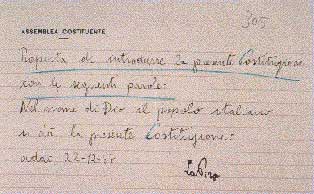 305
ASSEMBLEA COSTITUENTE
Proposta di introdurre la presente Costituzione
con le seguenti parole:
Nel nome di Dio il popolo italiano
si dà la presente Costituzione:
22-12-47
La Pira